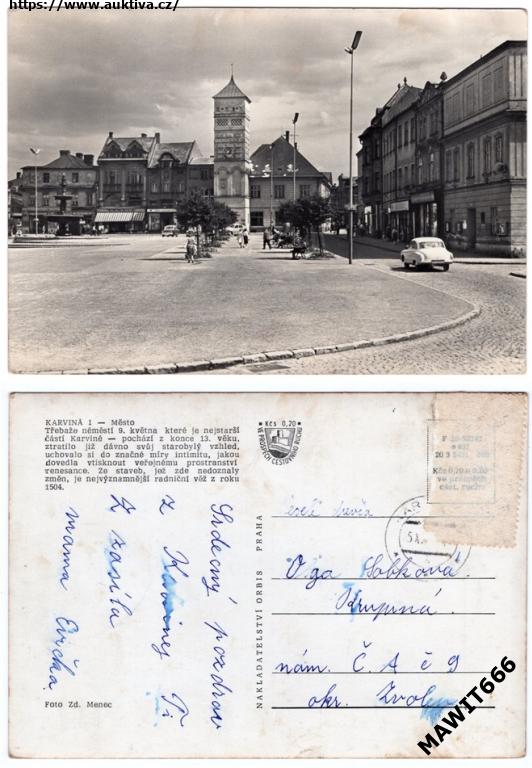 https://www.auktiva.cz/
KARVINÁ I — Město
Třebaže náměstí 9. května které je nejstarší
částí Karviné — pochází z konce 13. věku,
ztratilo již dávno svůj starobylý vzhled,
uchovalo si do značné míry intimitu, jakou
dovedla vtisknout veřejnému prostranství
renesance. Ze staveb, jež zde nedoznaly
změn, je nejvýznamnější radniční věž z roku
1504.
Srdečný pozdrav
z Karviney Ti
zasíla
mama Evička
Foto Zd. Menec
NAKLADATELSTVÍ ORBIS PRAHA
Kčs 0,20
VE PROSPĚCH CESTOVNÍHO RUCHU
Kčs 0,20
ve prospěch
cest. ruchu
Oga Sobková
Krupina
nám. Č A č 9
okr. Zvolen
MAWIT666